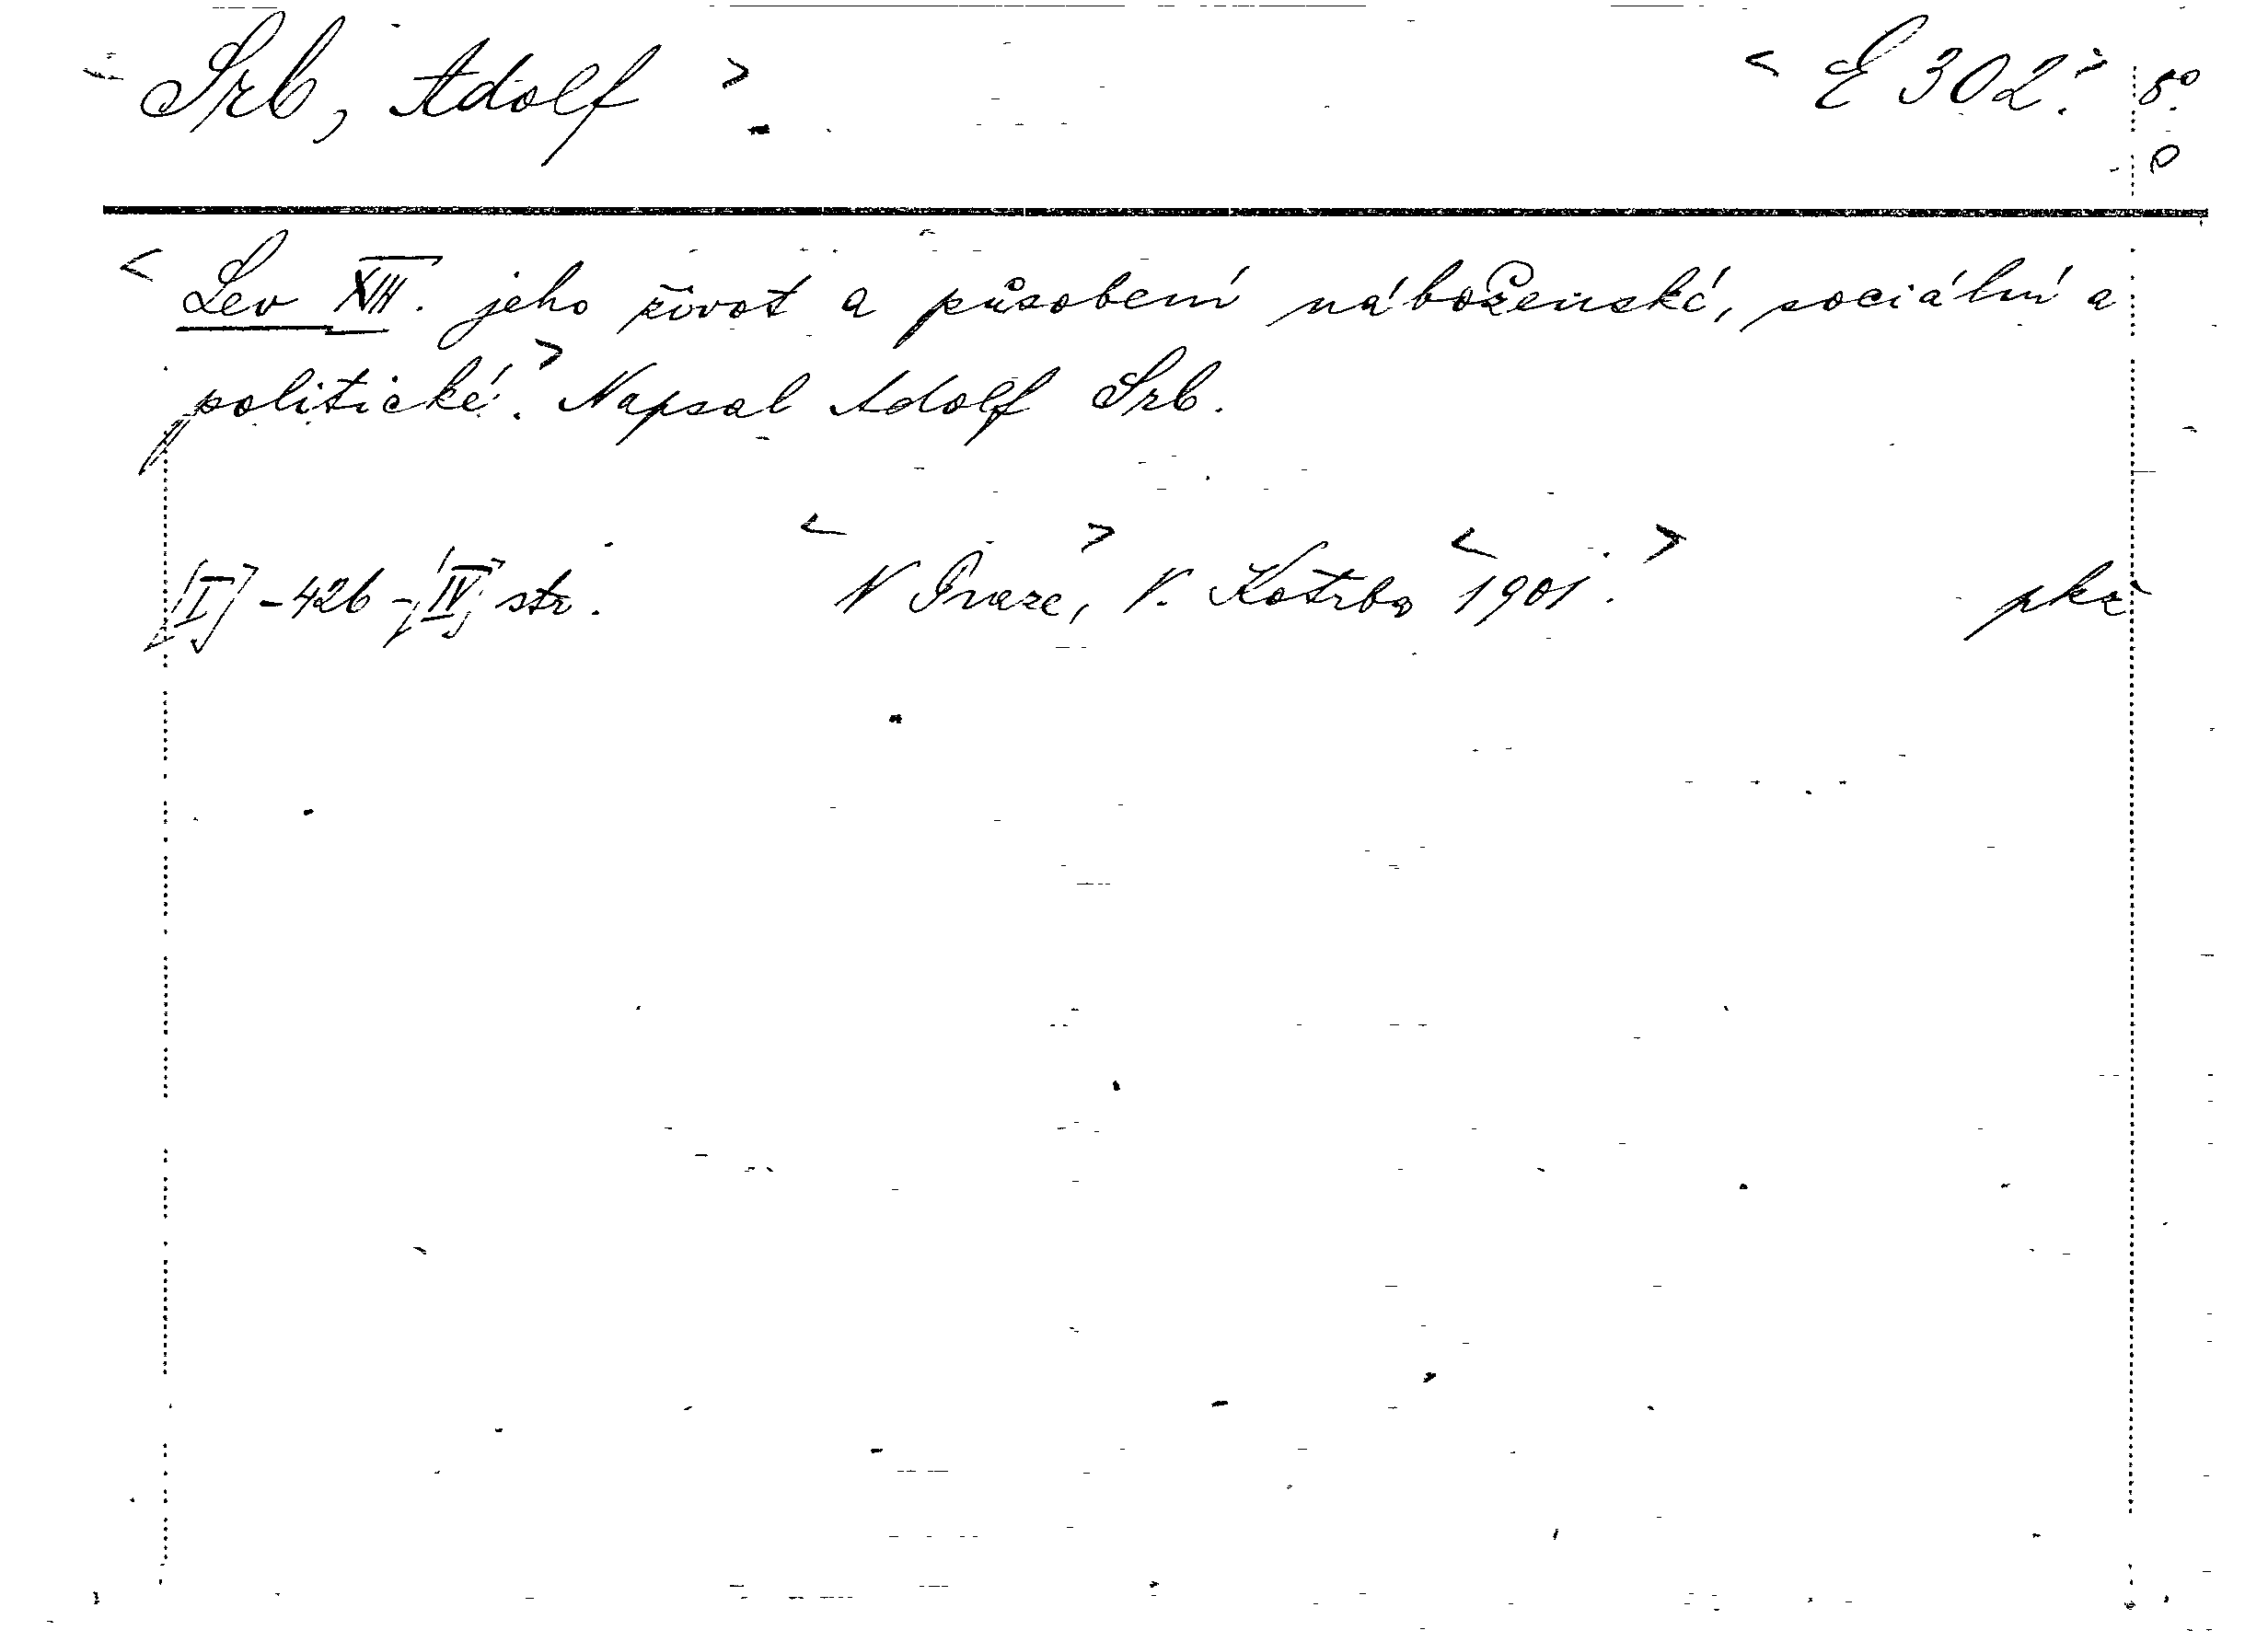 <Srb, Adolf> <E 302.> 8°.
<Lev XIII. jeho život a působení náboženské, sociální a
politické.> Napsal Adolf Srb.
[I] - 426 - [IV] str. <V Praze,> V. Kotrba <1901.> pkč